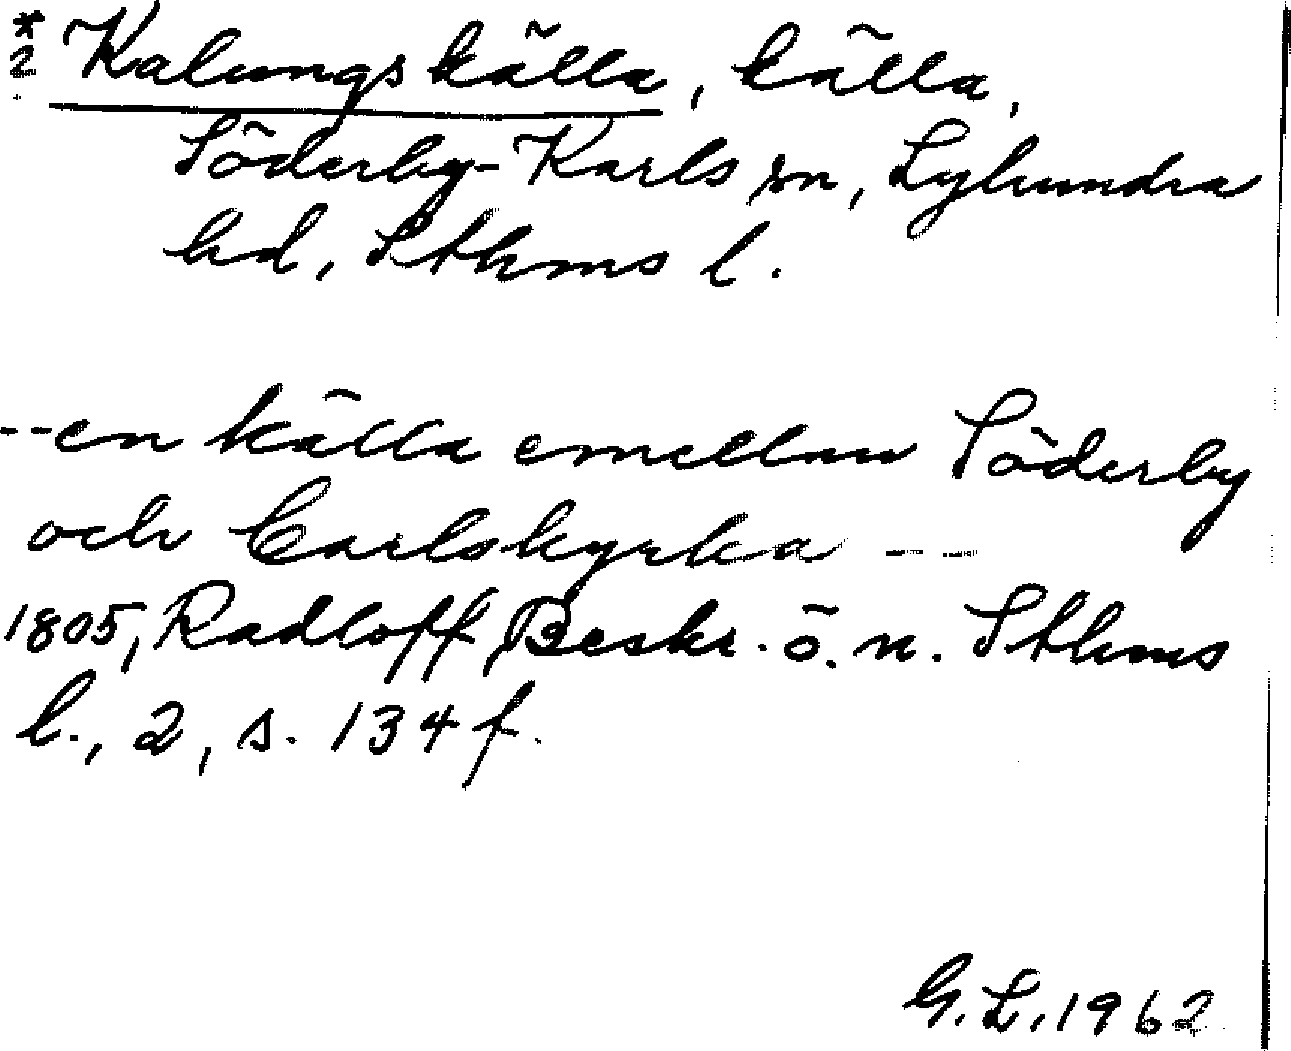 * Kalungskälla, källa,
2
Söderby-Karls sn, Lyhundra
hd, Sthms l.
--en källa emellan Söderby
och Carlskyrka ---
1805, Radloff, Beskr. ö. n. Sthms
l., 2, s. 134 f.
G. L. 1962